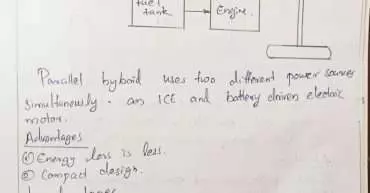 fuel
tank
Engine.
Parallel hybrid uses two different power sources
simultaneously - an ICE and battery driven electric
motor.
Advantages
① Energy loss is less.
② Compact design.